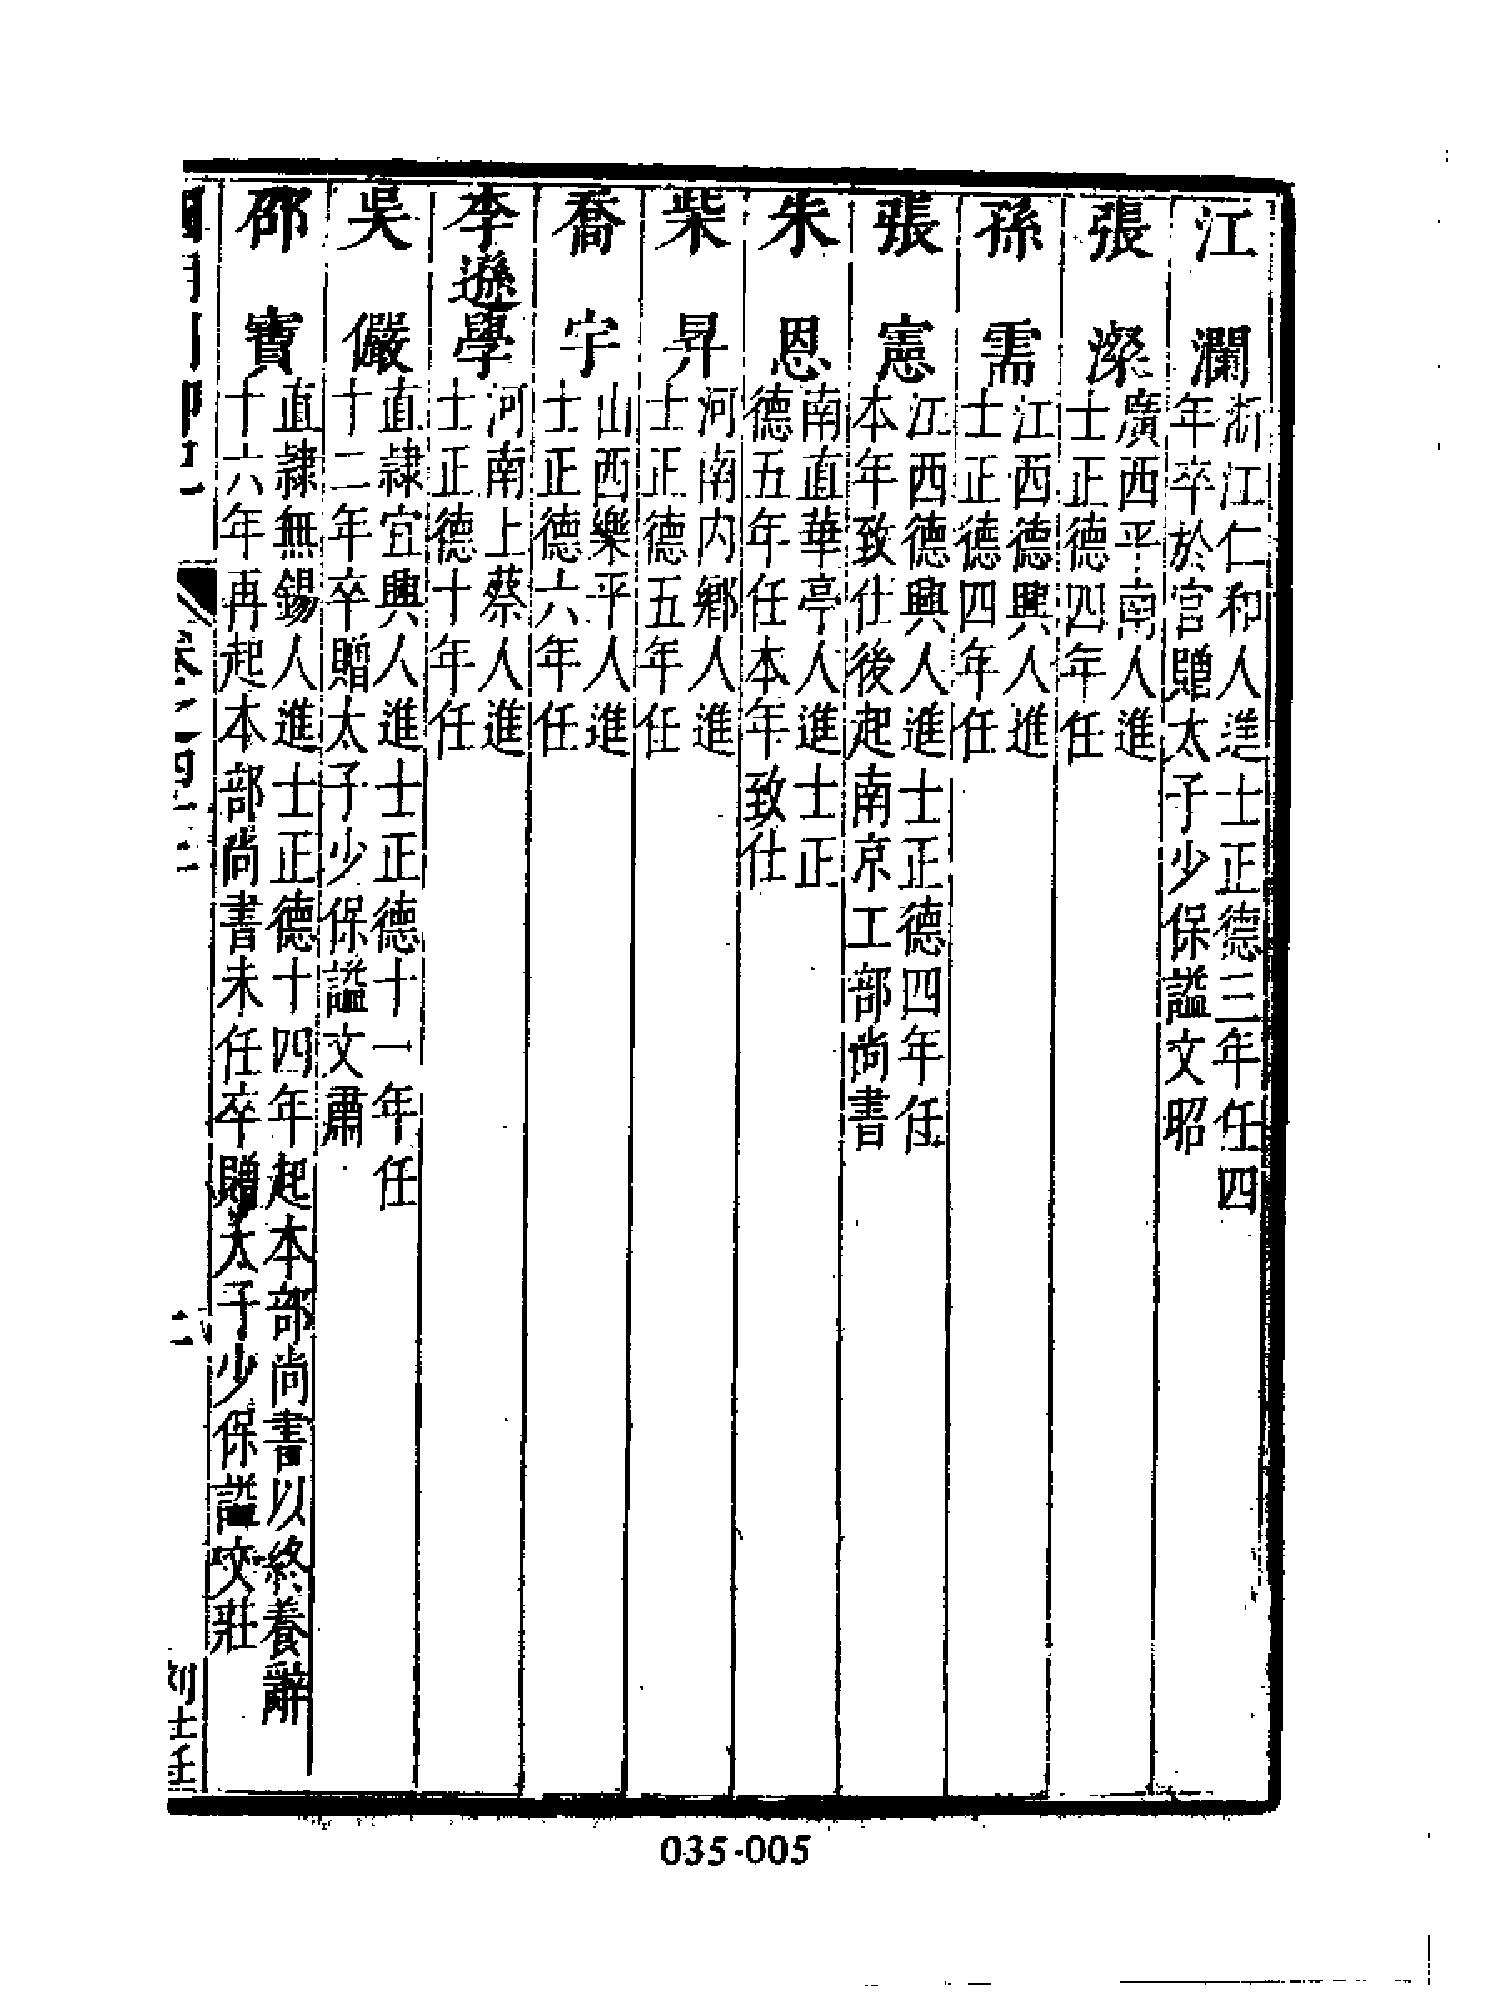 江瀾
浙江仁和人進士正德三年任四
年卒於官贈太子少保諡文昭
張澯
廣西平南人進
士正德四年任
孫需
江西德興人進
士正德四年任
張憲
江西德興人進士正德四年任
本年致仕後起南京工部尚書
朱恩
南直華亭人進士正
德五年任本年致仕
柴昇
河南内鄉人進
士正德五年任
喬宇
山西樂平人進
士正德六年任
李遜學
河南上蔡人進
士正德十年任
吳儼
直隷宜興人進士正德十一年任
十二年卒贈太子少保諡文肅
邵寶
直隷無錫人進士正德十四年起本部尚書以終養辭
十六年再起本部尚書未任卒贈太子少保諡文莊
卷之四十二
二
035-005